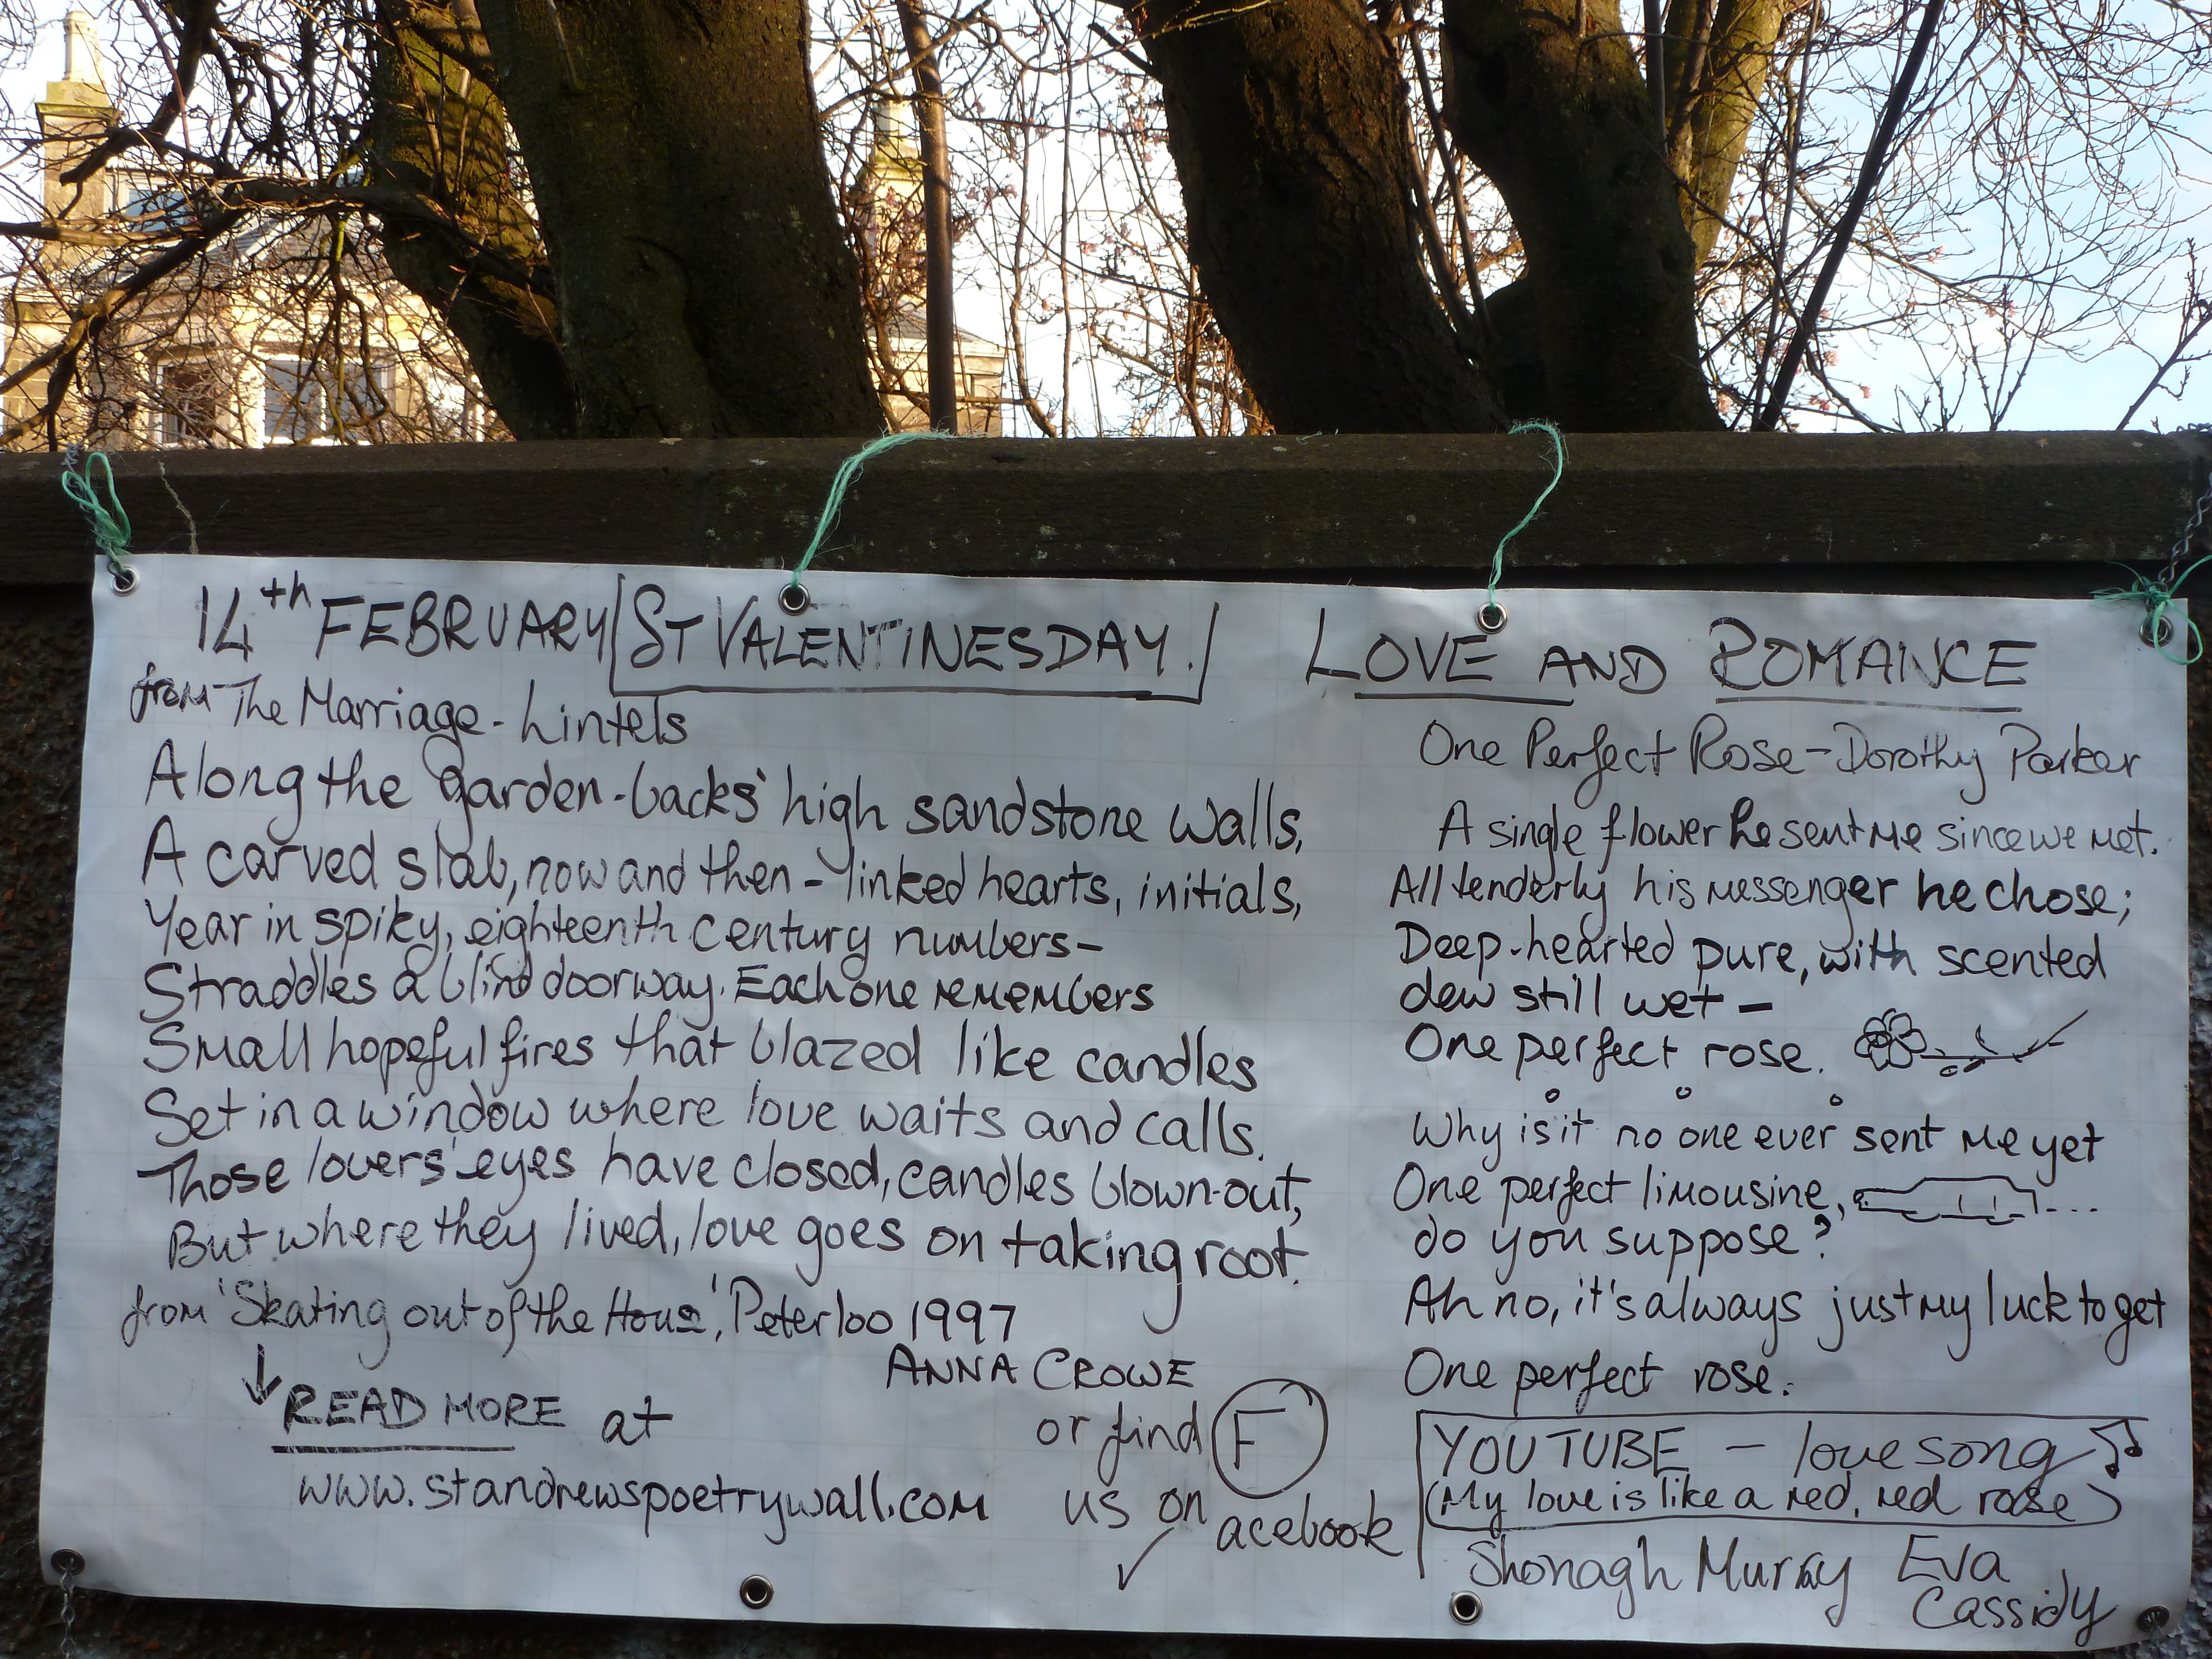 14th FEBRUARY ST VALENTINESDAY.
LOVE AND ROMANCE
from The Marriage-Lintels
Along the garden-backs' high sandstone walls,
A carved slab, now and then - linked hearts, initials,
Year in spiky, eighteenth century numbers-
Straddles a blind doorway. Each one remembers
Small hopeful fires that blazed like candles
Set in a window where love waits and calls.
Those lovers' eyes have closed, candles blown-out,
But where they lived, love goes on taking root.
from 'Skating out of the House', Peterloo 1997
ANNA CROWE
READ MORE at
www.standrewspoetrywall.com
or find
us on
Facebook
One Perfect Rose - Dorothy Parker
A single flower he sent me since we met.
All tenderly his messenger he chose;
Deep-hearted pure, with scented
dew still wet -
One perfect rose.
Why is it no one ever sent me yet
One perfect limousine,
do you suppose?
Ah no, it's always just my luck to get
One perfect rose.
YOUTUBE - love song
(My love is like a red, red rose)
Shonagh Murray Eva
Cassidy